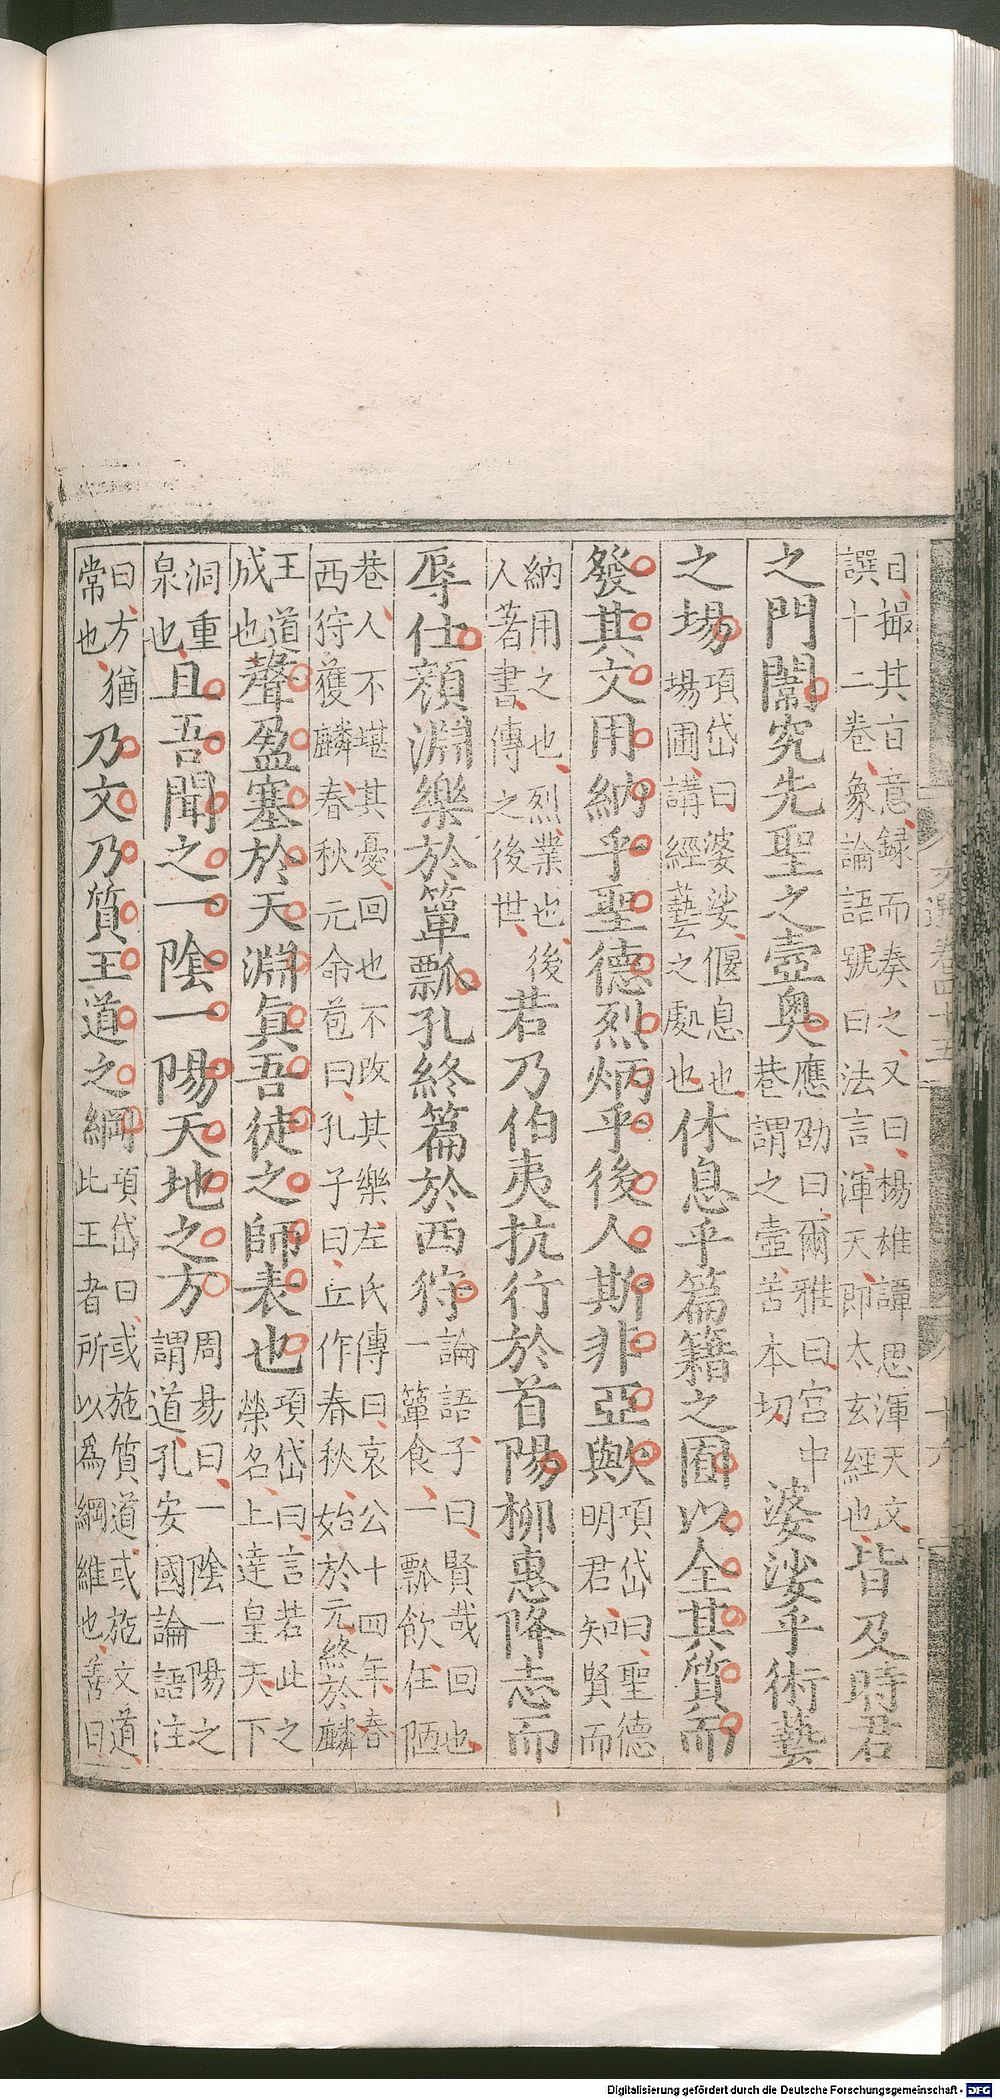 文選卷四十五
曰撮其旨意録而奏之又曰楊雄譚思渾天文
譔十二卷象論語號曰法言渾天即太玄經也
皆及時君
之門闈究先聖之壼奥
應劭曰爾雅曰宮中
巷謂之壼苦本切
婆娑乎術藝
之場
項岱曰婆娑偃息也
場圃講經藝之處也
休息乎篇籍之囿以全其質而
發其文用納乎聖德烈炳乎後人斯非亞歟
項岱曰聖德
明君知賢而
納用之也烈業也後
人著書傳之後世
若乃伯夷抗行於首陽柳惠降志而
辱仕顔淵樂於簞瓢孔終篇於西狩
論語子曰賢哉回也
一簞食一瓢飲在陋
巷人不堪其憂回也不改其樂左氏傳曰哀公十四年春
西狩獲麟春秋元命苞曰孔子曰丘作春秋始於元終於麟
王道
成也
聲盈塞於天淵眞吾徒之師表也
項岱曰言若此之
榮名上達皇天下
洞重
泉也
且吾聞之一陰一陽天地之方
周易曰一陰一陽之
謂道孔安國論語注
曰方猶
常也
乃文乃質王道之綱
項岱曰或施質道或施文道
此王者所以爲綱維也善曰
Digitalisierung gefördert durch die Deutsche Forschungsgemeinschaft - DFG